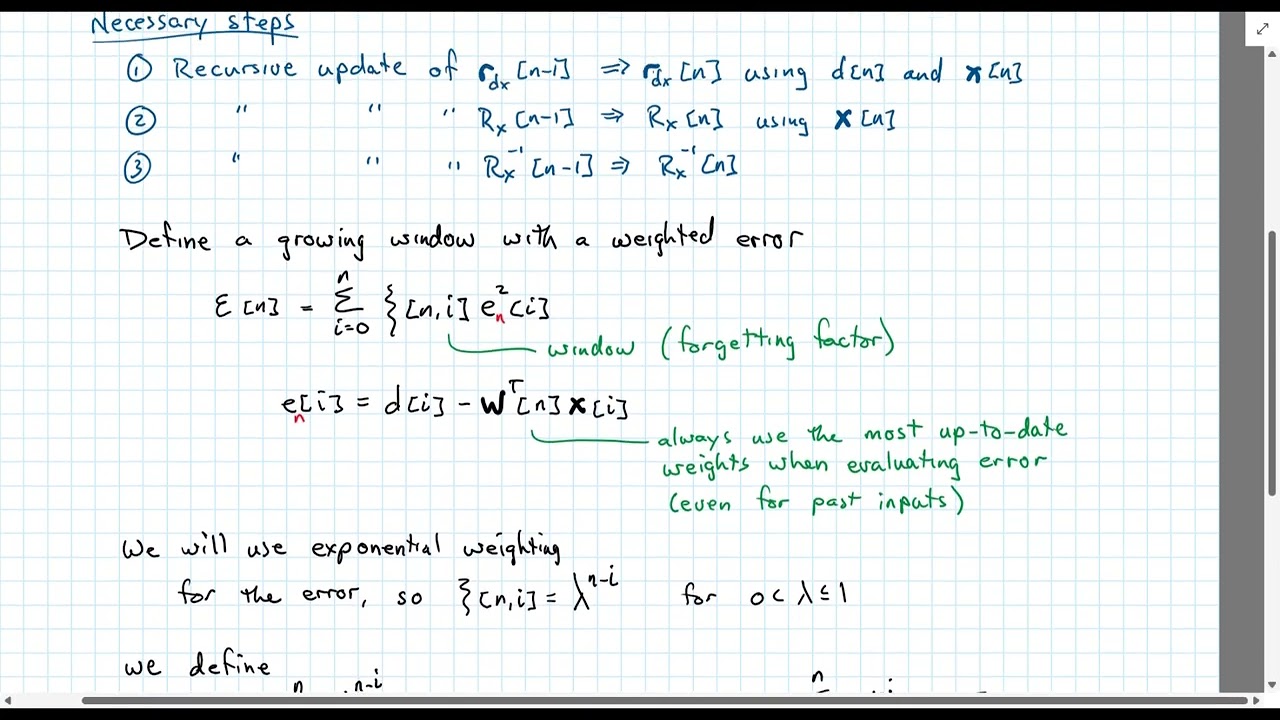 Necessary steps
① Recursive update of r_dx[n-1] ⇒ r_dx[n] using d[n] and x[n]
② " " " R_x[n-1] ⇒ R_x[n] using x[n]
③ " " " R_x^-1[n-1] ⇒ R_x^-1[n]
Define a growing window with a weighted error
ℰ[n] = Σ_{i=0}^{n} ξ[n,i] e_n^2[i]
window (forgetting factor)
e_n[i] = d[i] - w^T[n] x[i]
always use the most up-to-date
weights when evaluating error
(even for past inputs)
We will use exponential weighting
for the error, so ξ[n,i] = λ^{n-i} for 0 < λ ≤ 1
we define
n n-i n